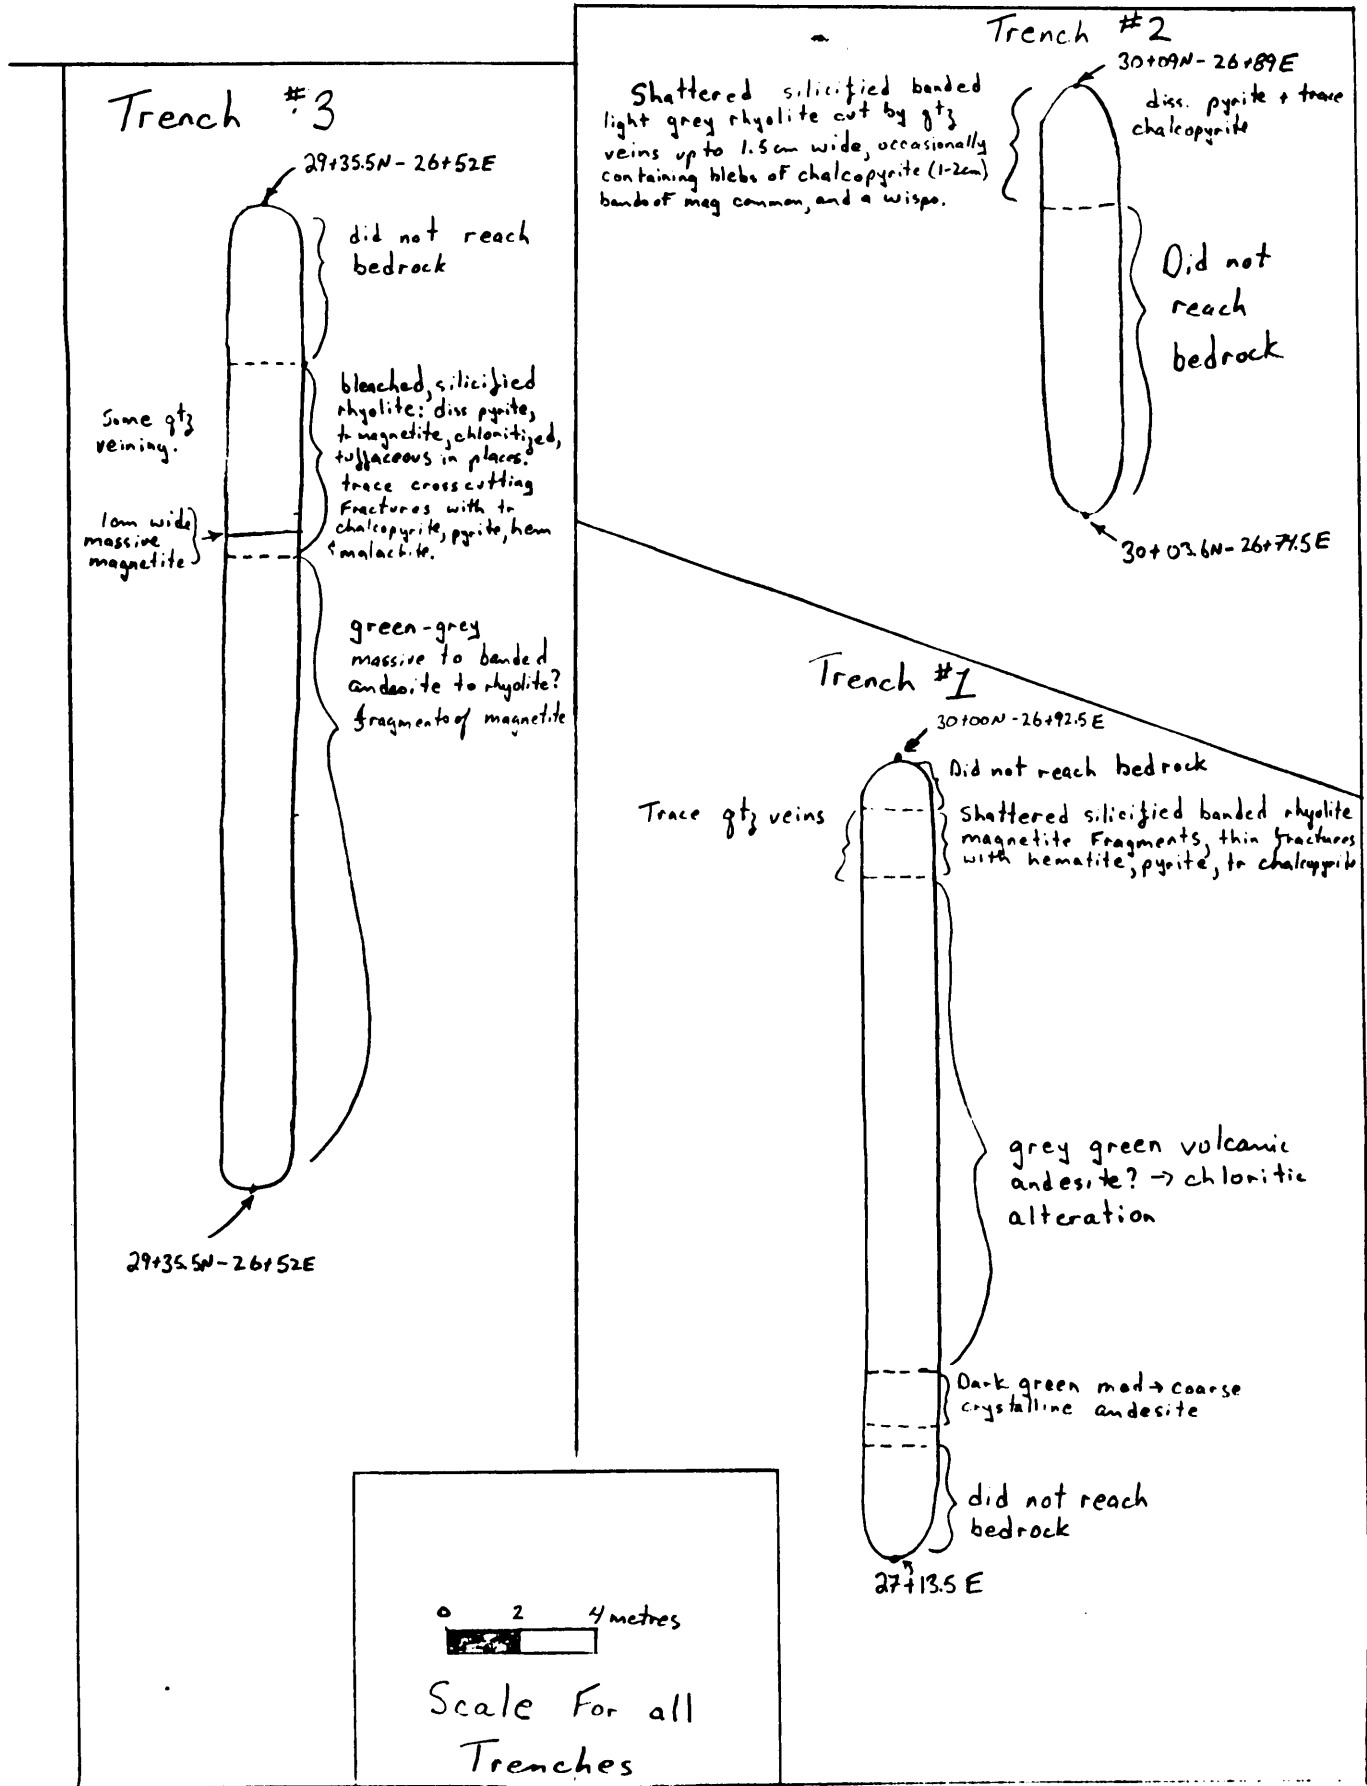 Trench #3
29+35.5N - 26+52E
did not reach
bedrock
bleached, silicified
rhyolite: diss pyrite,
tr magnetite, chloritized,
tuffaceous in places.
trace crosscutting
Fractures with tr
chalcopyrite, pyrite, hem
malachite.
Some qtz
veining.
massive
magnetite
green-grey
massive to banded
andesite to rhyolite?
fragments of magnetite
29+35.5N - 26+52E
Trench #2
30+09N - 26+89E
Shattered silicified banded
light grey rhyolite cut by qtz
veins up to 1.5 cm wide, occasionally
containing blebs of chalcopyrite (1-2cm)
bands of mag common, and a wisps.
diss. pyrite + trace
chalcopyrite
Did not
reach
bedrock
30+03.6N -
Trench #1
30+00N - 26+92.5E
Did not reach bedrock
Trace qtz veins
Shattered silicified banded rhyolite
magnetite Fragments, thin fractures
with hematite, pyrite, tr chalcopyrite
grey green volcanic
andesite? → chloritic
alteration
Dark green med → coarse
crystalline andesite
did not reach
bedrock
27+13.5 E
0 2 4 metres
Scale For all
Trenches